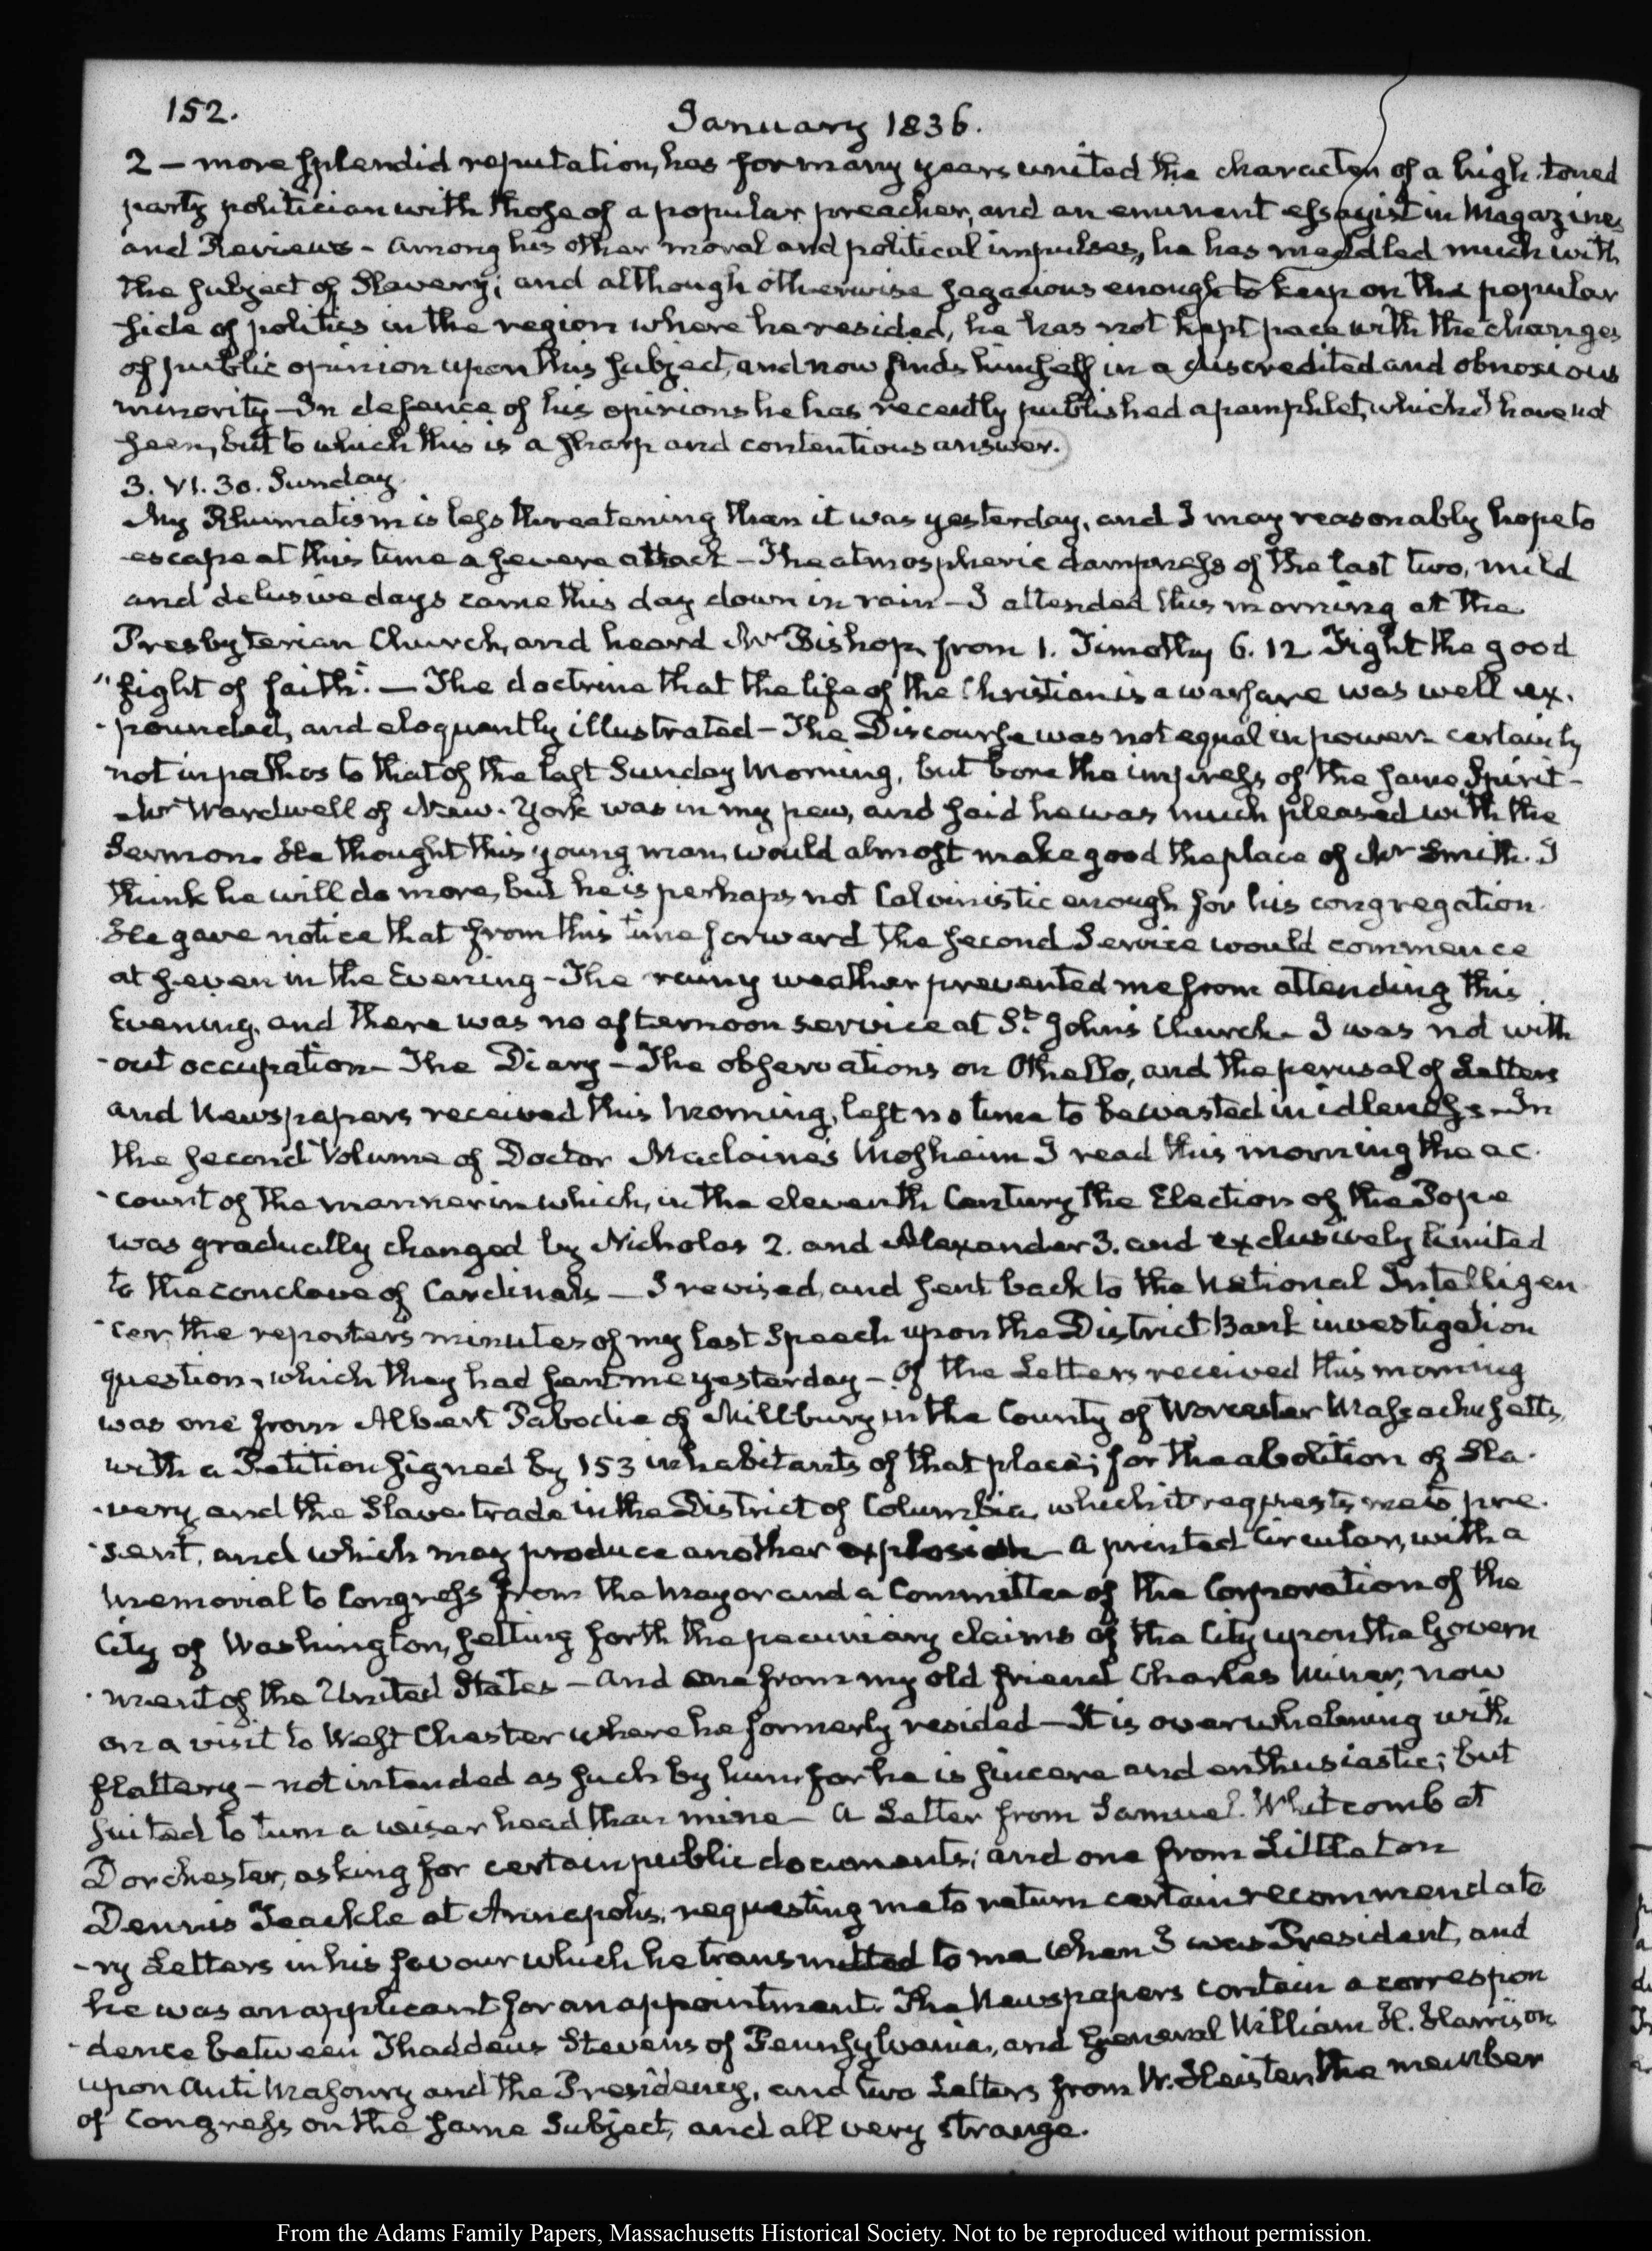 152.
January 1836.
2 — more splendid reputation, has for many years united the character of a high-toned
party politician with those of a popular preacher, and an eminent essayist in Magazines
and Reviews - Among his other moral and political impulses, he has meddled much with
the subject of Slavery; and although otherwise sagacious enough to keep on the popular
side of politics in the region where he resided, he has not kept pace with the changes
of public opinion upon this subject, and now finds himself in a discredited and obnoxious
minority - In defence of his opinions he has recently published a pamphlet, which I have not
seen, but to which this is a sharp and contentious answer.
3. VI. 30. Sunday.
My Rhumatism is less threatening than it was yesterday, and I may reasonably hope to
escape at this time a severe attack - The atmospheric dampness of the last two, mild
and delusive days came this day down in rain - I attended this morning at the
Presbyterian Church, and heard Mr Bishop, from 1. Timothy 6. 12 Fight the good
"fight of faith". — The doctrine that the life of the Christian is a warfare was well ex-
-pounded, and eloquently illustrated - The Discourse was not equal in power certainly
not in pathos to that of the last Sunday Morning, but bore the impress of the same Spirit -
Mr Wardwell of New-York was in my pew, and said he was much pleased with the
Sermon. He thought this young man, would almost make good the place of Mr Smith. I
think he will do more, but he is perhaps not Calvinistic enough for his congregation.
He gave notice that from this time forward the second Service would commence
at seven in the Evening - The rainy weather prevented me from attending this
Evening, and there was no afternoon service at St. John's Church - I was not with
-out occupation - The Diary - The observations on Othello, and the perusal of Letters
and Newspapers received this Morning, left no time to be wasted in idleness - In
the second Volume of Doctor Maclaine's Mosheim I read this morning the ac-
-count of the manner in which, in the eleventh Century the Election of the Pope
was gradually changed by Nicholas 2. and Alexander 3. and exclusively limited
to the conclave of Cardinals — I revised and sent back to the National Intelligen
-cer, the reporters minutes of my last Speech upon the District Bank investigation
question, which they had sent me yesterday - Of the Letters received this morning
was one from Albert Pabodie of Millbury in the County of Worcester Massachusetts,
with a Petition signed by 153 inhabitants of that place; for the abolition of Sla-
-very and the Slave trade in the District of Columbia, which it requests me to pre-
-sent, and which may produce another explosion - A printed Circular, with a
Memorial to Congress from the Mayor and a Committee of the Corporation of the
City of Washington, setting forth the pecuniary claims of the City upon the Govern
-ment of the United States - and one from my old friend Charles Miner, now
on a visit to West Chester where he formerly resided - It is overwhelming with
flattery - not intended as such by him, for he is sincere and enthusiastic; but
suited to turn a wiser head than mine - A Letter from Samuel Whitcomb at
Dorchester, asking for certain public documents; and one from Littleton
Dennis Teackle at Annapolis, requesting me to return certain recommendato
-ry Letters in his favour which he transmitted to me when I was President, and
he was an applicant for an appointment. The Newspapers contain a correspon
-dence between Thaddeus Stevens of Pennsylvania, and General William H. Harrison
upon Anti Masonry and the Presidency, and two Letters from W. Heister the member
of Congress on the same Subject, and all very strange.
From the Adams Family Papers, Massachusetts Historical Society. Not to be reproduced without permission.